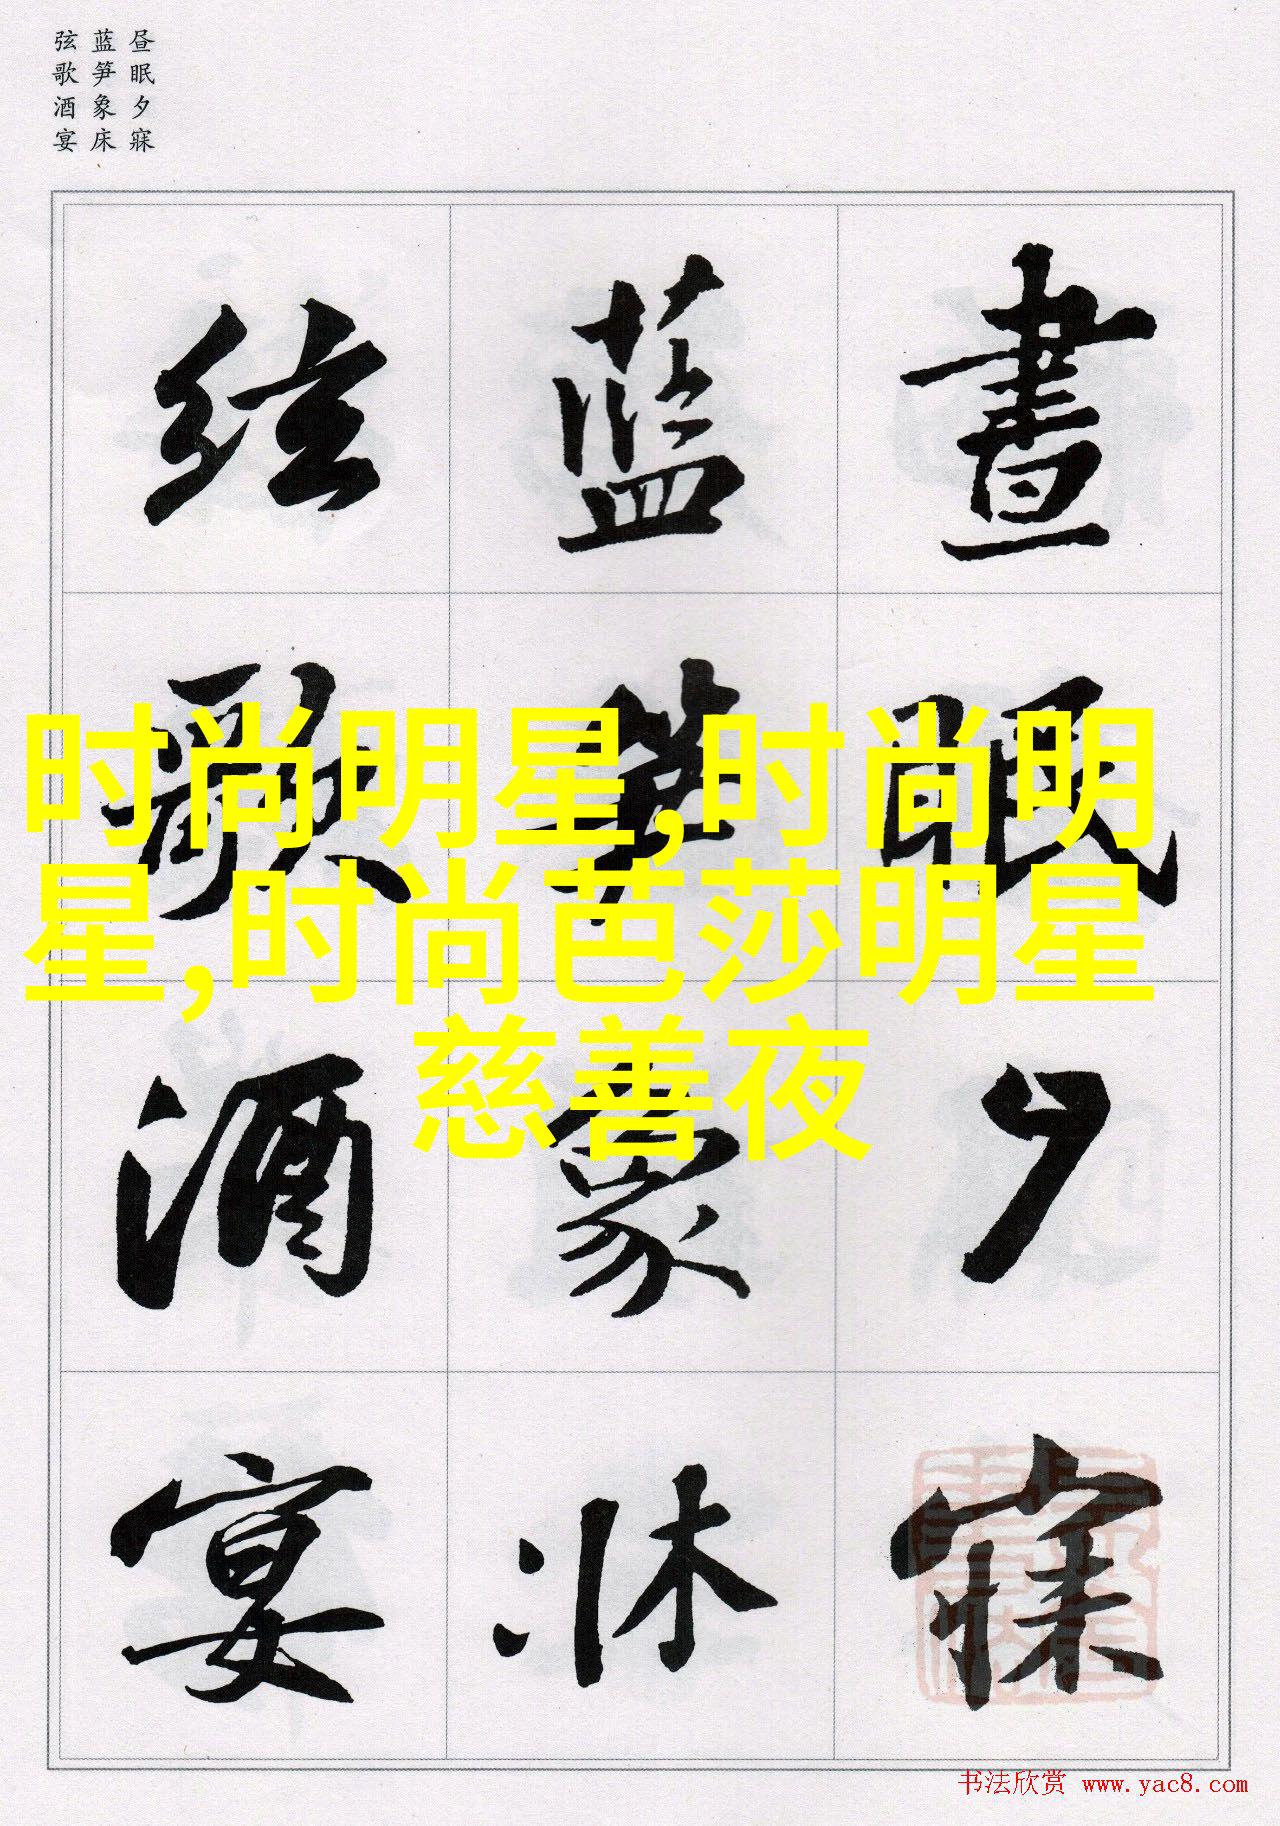 昼眠夕寐
蓝笋象床
弦歌酒宴
晝眠夕寐
蓝笋象牀
弦歌酒宴
时尚明星,时尚明
星,时尚芭莎明星
慈善夜
书法欣赏 www.yac8.com